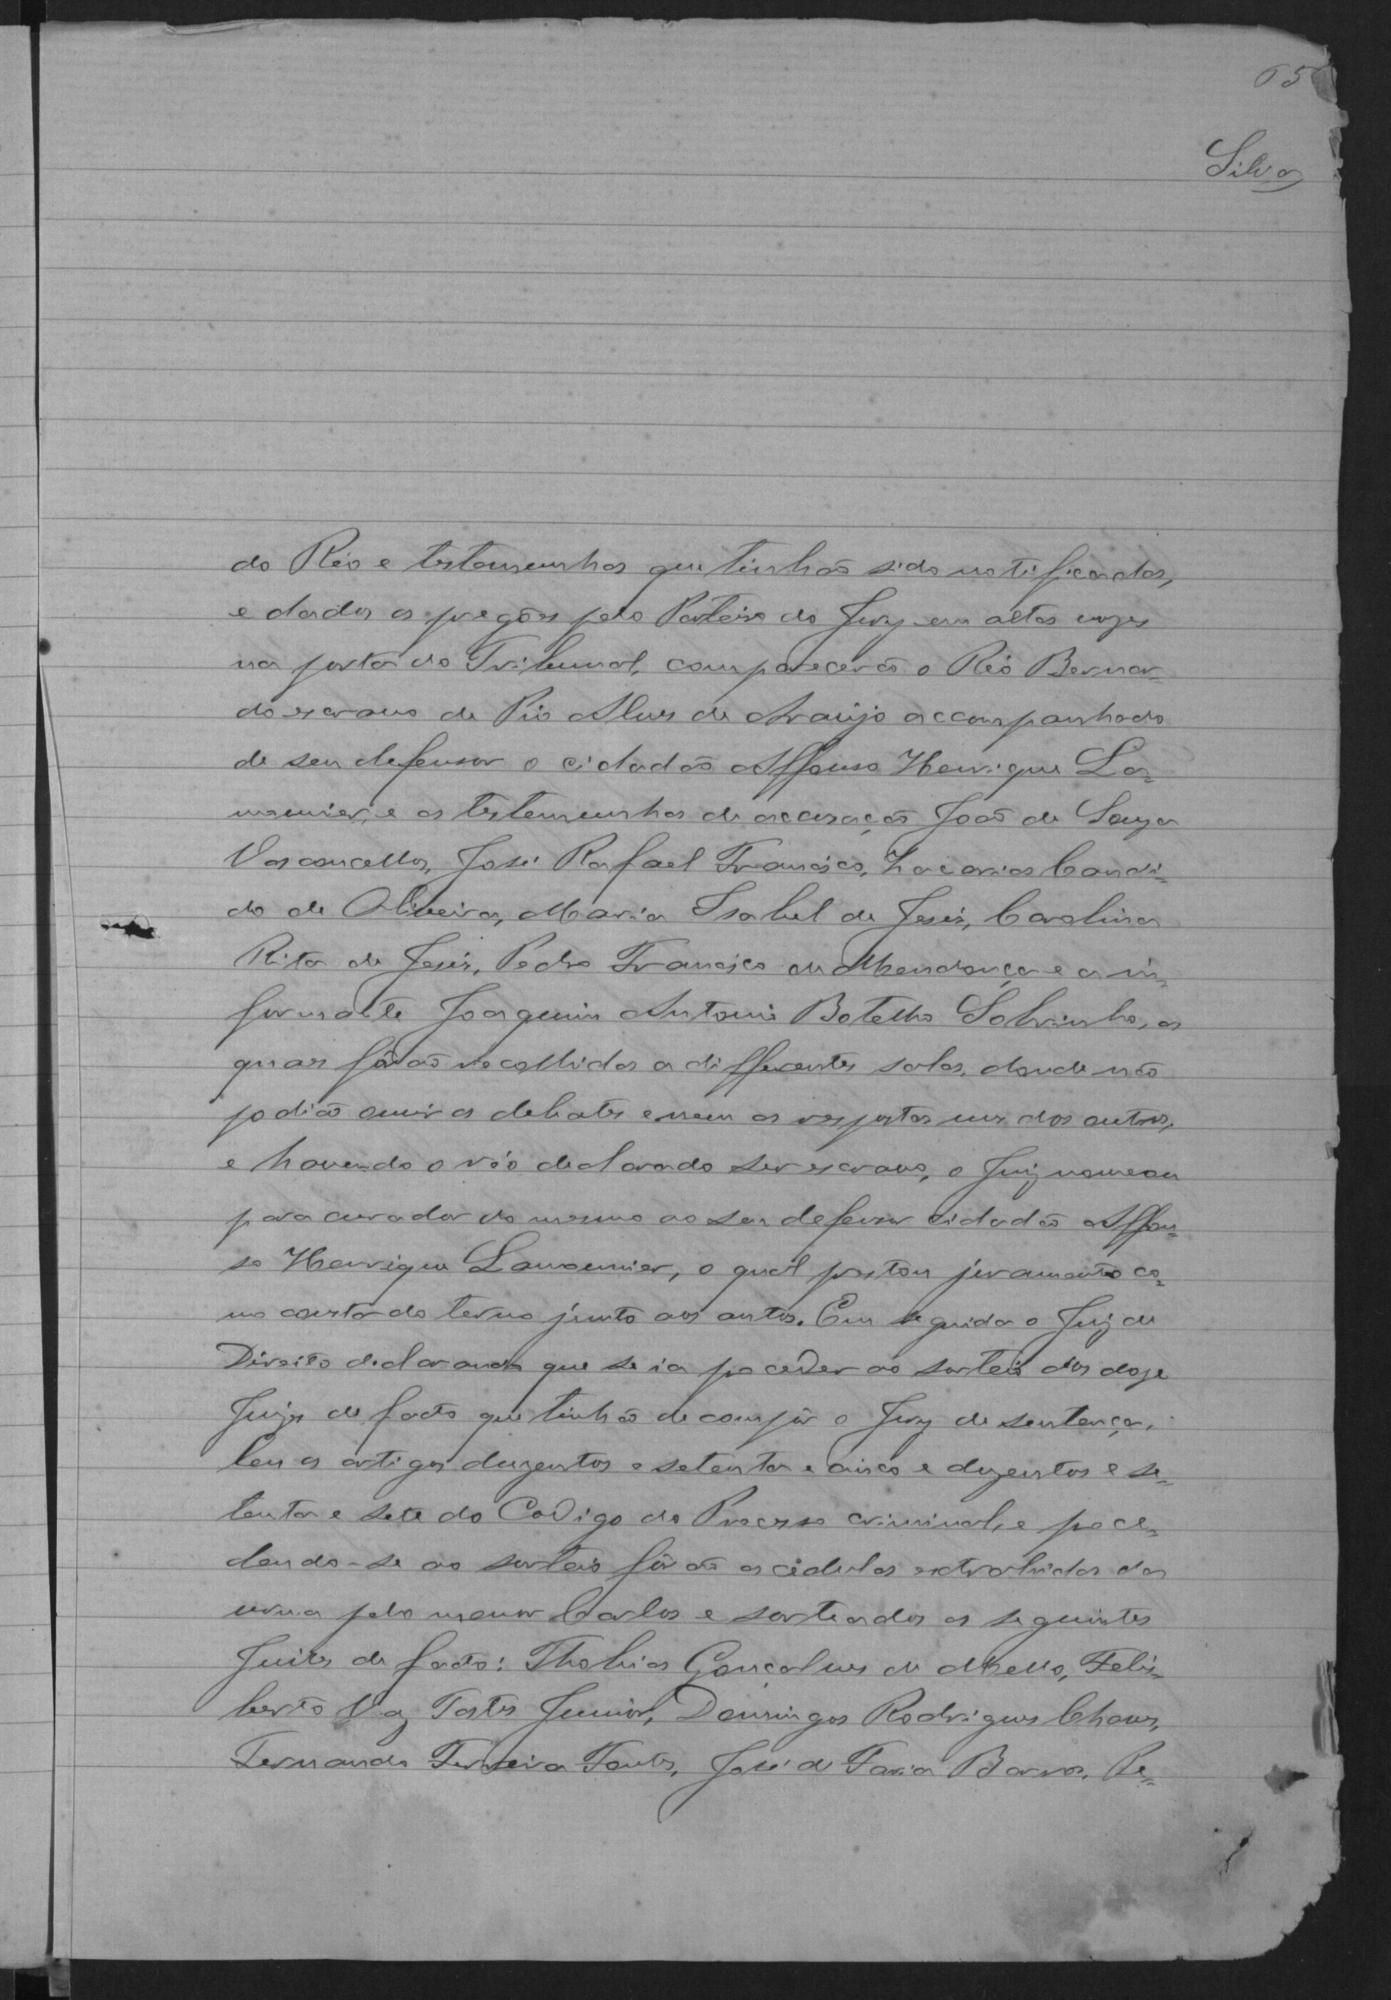 65
Silva
do Réo e testemunhas que tinhão sido notificadas,
e dados os pregões pelo Porteiro do Jury em altas vozes
na porta do Tribunal, comparecerão o Réo Bernar=
do escravo de Pio Alves de Araujo accompanhado
de seu defensor o cidadão Affonso Henrique La=
mounier, e as testemunhas de accusação João de Souza
Vasconcellos, José Rafael Francisco, Zacarias Candi=
do de Oliveira, Maria Isabel de Jesus, Carolina
Rita de Jesus, Pedro Francisco de Mendonça e a in=
formante Joaquim Antonio Botelho Sobrinho, as
quaes fôrão recolhidas a differentes salas, donde não
podião ouvir os debates e nem as respostas uns dos outros,
e havendo o réo declarado ser escravo, o Juiz nomeou
para curador do mesmo ao seu defensor cidadão Affon=
so Henrique Lamounier, o qual prestou juramento co=
mo consta do termo junto aos autos. Em seguida o Juiz de
Direito declarando que se ia proceder ao sorteio dos doze
Juizes de facto que tinhão de compôr o Jury de sentença,
leu os artigos duzentos e setenta e cinco e duzentos e se=
tenta e sete do Codigo do Processo criminal, e proce=
dendo-se ao sorteio fôrão as cédulas extrahidas da
urna pelo menor Carlos e sorteados os seguintes
Juizes de facto: Thobias Gonçalves de Mello, Felis=
berto Vaz Tostes Junior, Domingos Rodrigues Chaves,
Fernando Ferreira Fontes, José de Faria Barros, Pe=